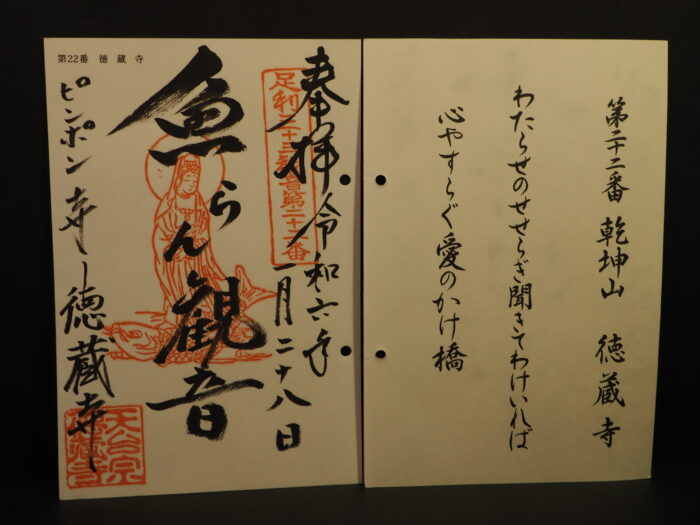 第二十二番 乾坤山 徳蔵寺
わたらせのせせらぎ聞きてわけいれば
心やすらぐ愛のかけ橋
第22番 徳蔵寺
奉拝 令和六年
一月二十八日
足利三十三観音第二十二番
魚らん観音
ピンポン寺 徳蔵寺
天台宗
徳蔵寺